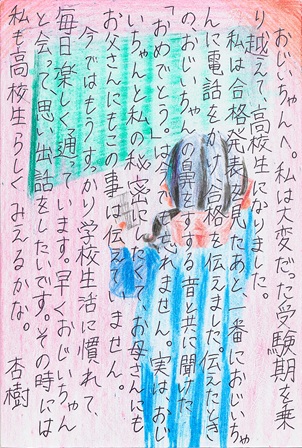 おじいちゃんへ。私は大変だった受験期を乗
り越えて高校生になりました。
私は合格発表を見たあと、一番におじいちゃ
んに電話をかけ、合格を伝えました。伝えたとき
のおじいちゃんの鼻をすする音と共に聞けた
「おめでとう。」は れません。実はおじ
いちゃんと私の秘密にして、お母さんにも
お父さんにもこの事は伝えていません。
今ではもうすっかり学校生活に慣れて、
毎日楽しく通っています。早くおじいちゃん
と会って、思い出話をしたいです。その時には
私も高校生らしくみえるかな。 杏樹